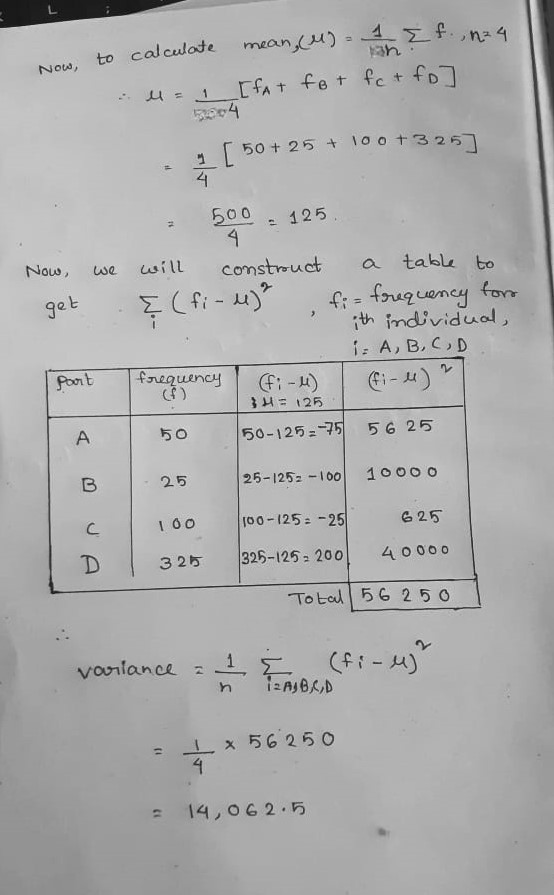 Now, to calculate mean, (μ) = 1/n Σ f., n=4
∴ μ = 1/4 [f_A + f_B + f_C + f_D]
= 1/4 [50+25+100+325]
= 500/4 = 125.
Now, we will construct a table to
get Σ_i (fi - μ)², fi = frequency for
ith individual,
i = A, B, C, D
Part frequency (f) (fi-μ) μ = 125 (fi-μ)²
A 50 50-125=-75 5625
B 25 25-125=-100 10000
C 100 100-125=-25 625
D 325 325-125=200 40000
Total 56250
∴
variance = 1/n Σ_{i=A,B,C,D} (fi-μ)²
= 1/4 × 56250
= 14,062.5